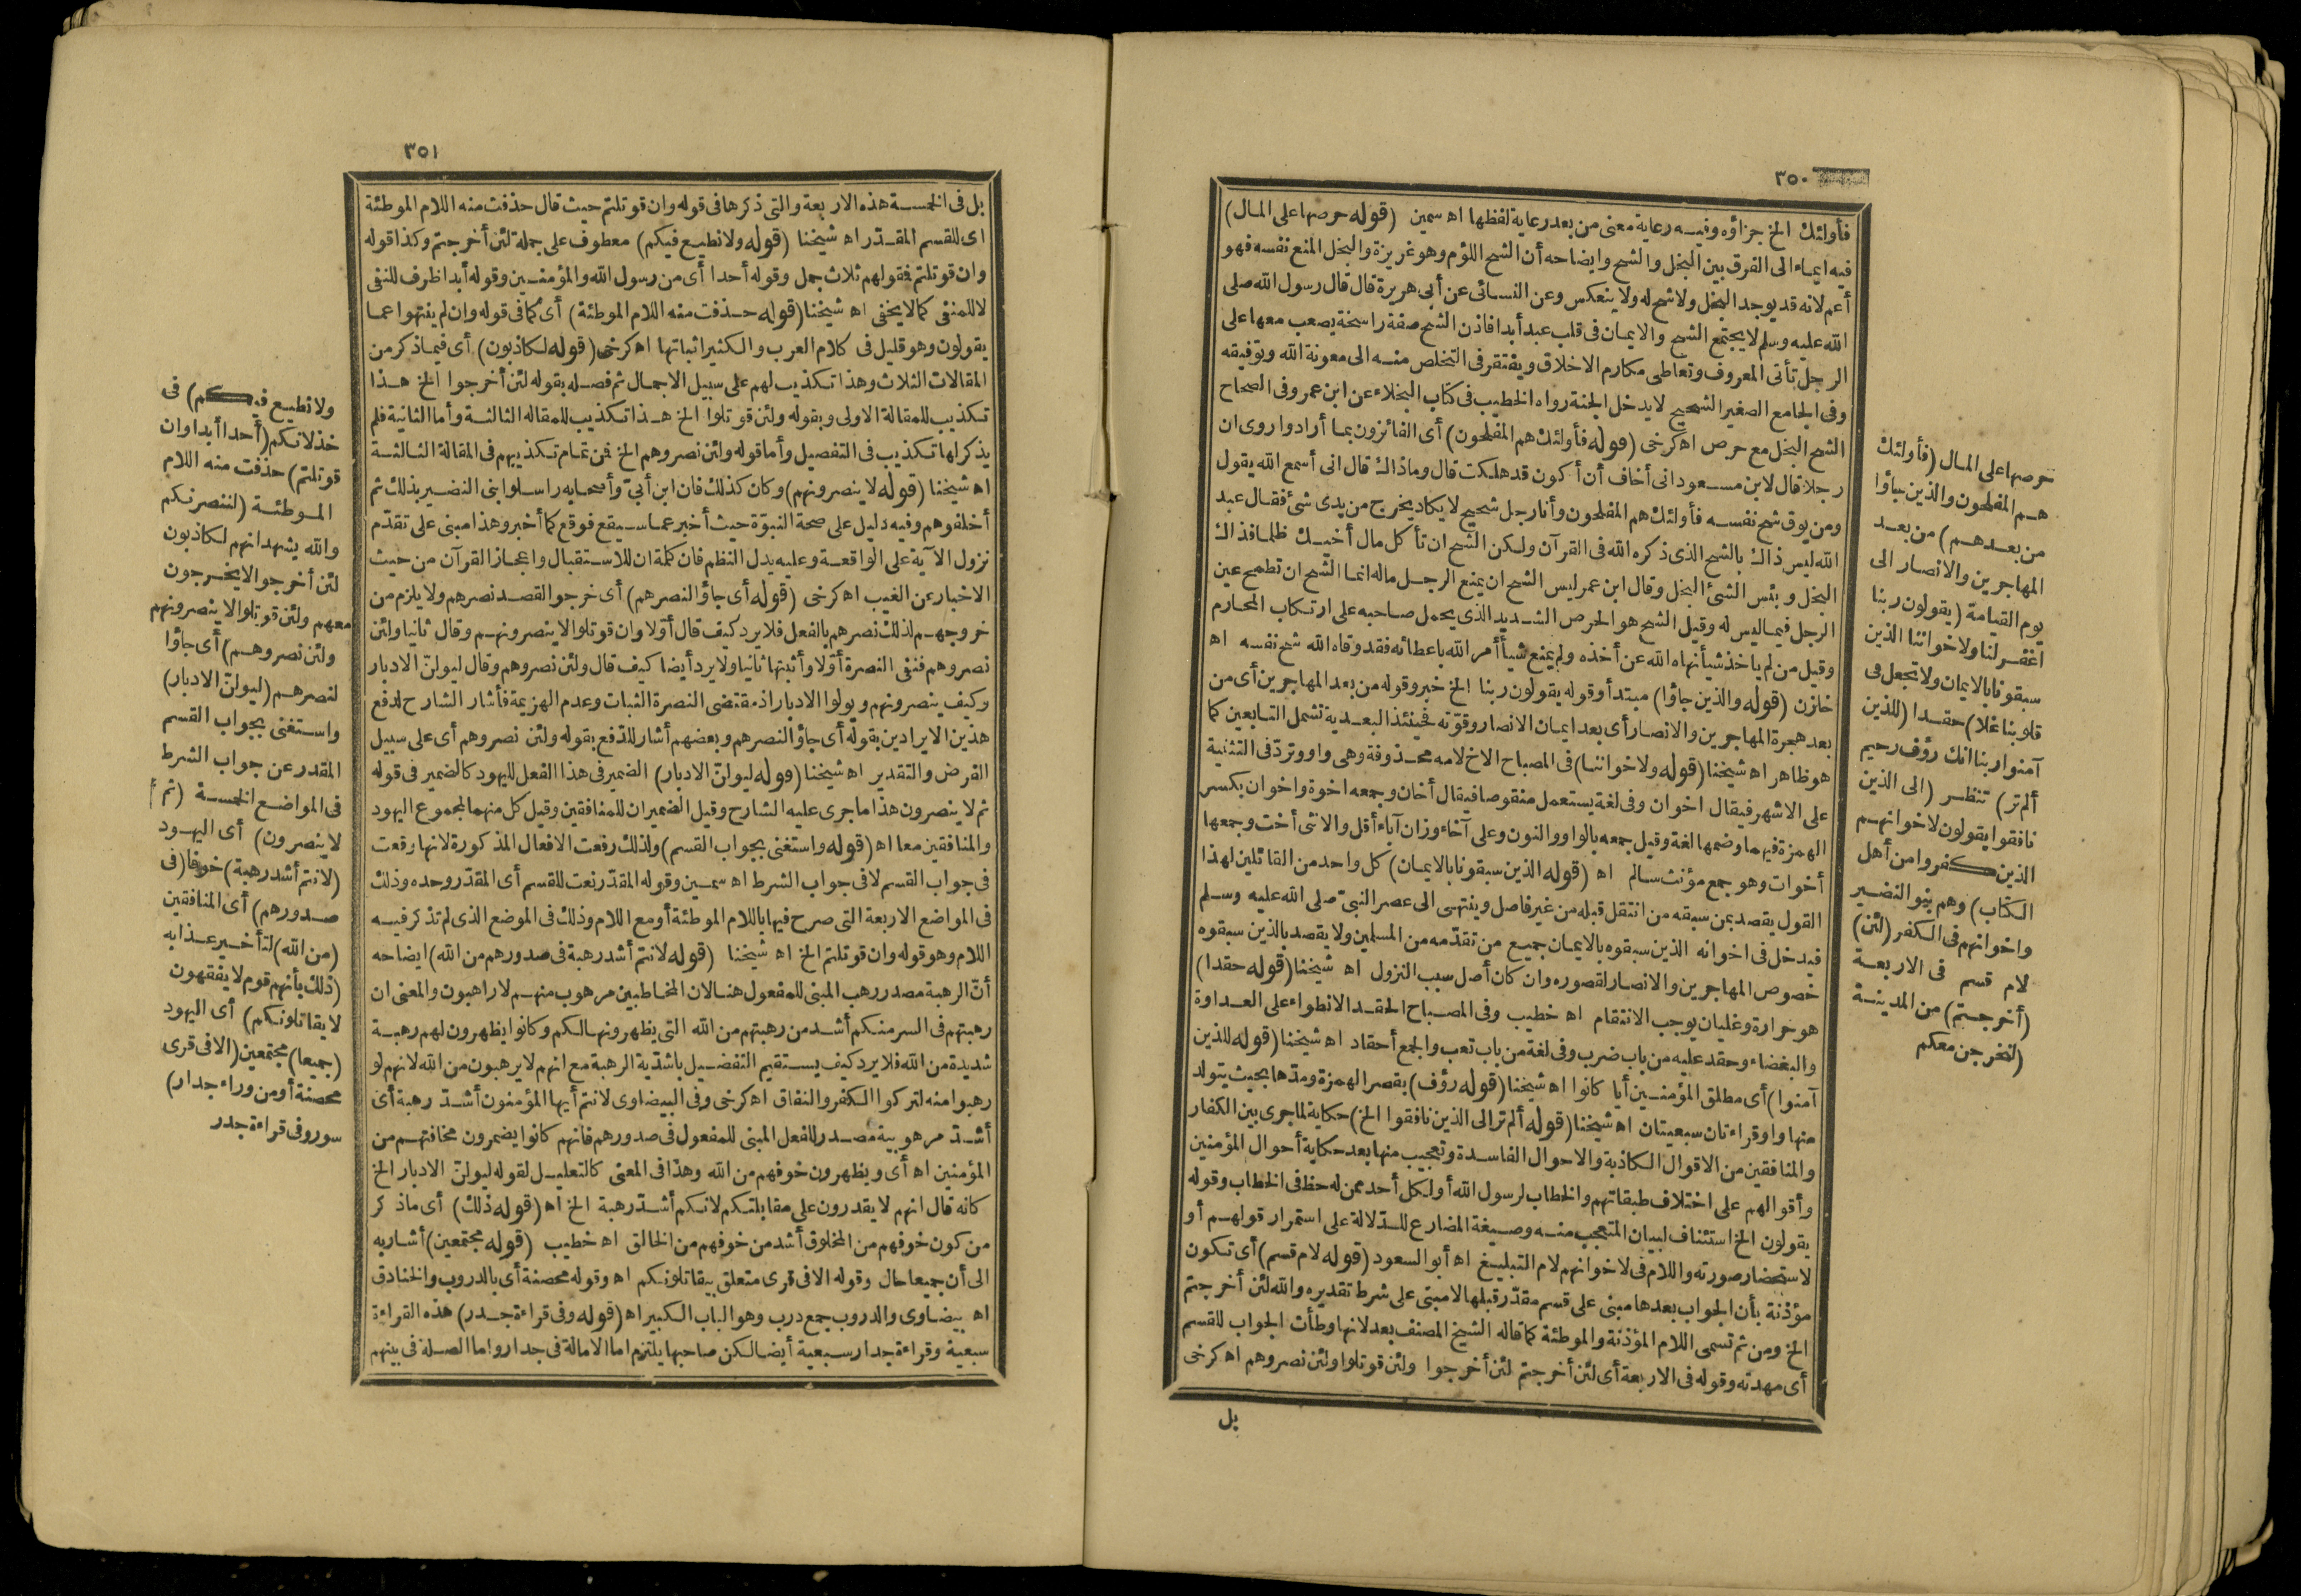 ٣٥٠
فأولئك الخ جزاؤه وفيه رعاية معنى من بعد رعاية لفظها اه سمين (قوله حرصها على المال)
فيه ايماء الى الفرق بين البخل والشح وايضاحه أن الشح اللؤم وهو غريزة والبخل المنع نفسه فهو
أعم لانه قد يوجد البخل ولا شح له ولا ينعكس وعن النسائى عن أبى هريرة قال قال رسول الله صلى
الله عليه وسلم لا يجتمع الشح والايمان فى قلب عبد أبدا فاذن الشح صفة راسخة يصعب معها على
الرجل تأتى المعروف وتعاطى مكارم الاخلاق ويفتقر فى التخلص منه الى معونة الله وتوفيقه
وفى الجامع الصغير الشحيح لا يدخل الجنة رواه الخطيب فى كتاب البخلاء عن ابن عمر وفى الصحاح
الشح البخل مع حرص اه كرخى (قوله فأولئك هم المفلحون) أى الفائزون بما أرادوا روى ان
رجلا قال لابن مسعود انى أخاف أن أكون قد هلكت قال وماذاك قال انى أسمع الله يقول
ومن يوق شح نفسه فأولئك هم المفلحون وأنا رجل شحيح لا يكاد يخرج من يدى شئ فقال عبد
الله ليس ذاك بالشح الذى ذكره الله فى القرآن ولكن الشح ان تأكل مال أخيك ظلما فذاك
البخل وبئس الشئ البخل وقال ابن عمر ليس الشح ان يمنع الرجل ماله انما الشح ان تطمح عين
الرجل فيما ليس له وقيل الشح هو الحرص الشديد الذى يحمل صاحبه على ارتكاب المحارم
وقيل من لم ياخذ شيأ نهاه الله عن أخذه ولم يمنع شيأ أمر الله باعطائه فقد وقاه الله شح نفسه اه
خازن (قوله والذين جاؤا) مبتدأ وقوله يقولون ربنا الخ خبر وقوله من بعد المهاجرين أى من
بعد هجرة المهاجرين والانصار أى بعد ايمان الانصار وقوته فحينئذ البعدية تشمل التابعين كما
هو ظاهر اه شيخنا (قوله ولاخواننا) فى المصباح الاخ لامه محذوفة وهى واو وترد فى التثنية
على الاشهر فيقال اخوان وفى لغة يستعمل منقوصا فيقال أخان وجمعه اخوة واخوان بكسر
الهمزة فيهما وضمها لغة وقيل جمعه بالواو والنون وعلى آخاء وزان آباء أقل والانثى أخت وجمعها
أخوات وهو جمع مؤنث سالم اه (قوله الذين سبقونا بالايمان) كل واحد من القائلين لهذا
القول يقصد بمن سبقه من انتقل قبله من غير فاصل وينتهى الى عصر النبى صلى الله عليه وسلم
فيدخل فى اخوانه الذين سبقوه بالايمان جميع من تقدمه من المسلمين ولا يقصد بالذين سبقوه
خصوص المهاجرين والانصار لقصوره وان كان أصل سبب النزول اه شيخنا (قوله حقدا)
هو حرارة وغليان يوجب الانتقام اه خطيب وفى المصباح الحقد الانطواء على العداوة
والبغضاء وحقد عليه من باب ضرب وفى لغة من باب تعب والجمع أحقاد اه شيخنا (قوله للذين
آمنوا) أى مطلق المؤمنين أيا كانوا اه شيخنا (قوله رؤف) بقصر الهمزة ومدها بحيث يتولد
منها واو قراءتان سبعيتان اه شيخنا (قوله ألم تر الى الذين نافقوا الخ) حكاية لما جرى بين الكفار
والمنافقين من الاقوال الكاذبة والاحوال الفاسدة وتعجيب منها بعد حكاية أحوال المؤمنين
وأقوالهم على اختلاف طبقاتهم والخطاب لرسول الله أو لكل أحد ممن له حظ فى الخطاب وقوله
يقولون الخ استئناف لبيان المتعجب منه وصيغة المضارع للدلالة على استمرار قولهم أو
لاستحضار صورته واللام فى لاخوانهم لام التبليغ اه أبو السعود (قوله لام قسم) أى تكون
مؤذنة بأن الجواب بعدها مبنى على قسم مقدر قبلها لا مبنى على شرط تقديره والله لئن أخرجتم
الخ ومن ثم تسمى اللام المؤذنة والموطئة كما قاله الشيخ المصنف بعد لانها وطأت الجواب للقسم
أى مهدته وقوله فى الاربعة أى لئن أخرجتم لئن أخرجوا ولئن قوتلوا ولئن نصروهم اه كرخى
بل
حرصها على المال (فأولئك
هم المفلحون والذين جاؤا
من بعدهم) من بعد
المهاجرين والانصار الى
يوم القيامة (يقولون ربنا
اغفر لنا ولاخواننا الذين
سبقونا بالايمان ولا تجعل فى
قلوبنا غلا) حقدا (للذين
آمنوا ربنا انك رؤف رحيم
ألم تر) تنظر (الى الذين
نافقوا يقولون لاخوانهم
الذين كفروا من أهل
الكتاب) وهم بنو النضير
واخوانهم فى الكفر (لئن)
لام قسم فى الاربعة
(أخرجتم) من المدينة
(لنخرجن معكم
٣٥١
بل فى الخمسة هذه الاربعة والتى ذكرها فى قوله وان قوتلتم حيث قال حذفت منه اللام الموطئة
اى للقسم المقدر اه شيخنا (قوله ولا نطيع فيكم) معطوف على جملة لئن أخرجتم وكذا قوله
وان قوتلتم فقولهم ثلاث جمل وقوله أحدا أى من رسول الله والمؤمنين وقوله أبدا ظرف للنفى
لا للمنفى كما لا يخفى اه شيخنا (قوله حذفت منه اللام الموطئة) أى كما فى قوله وان لم ينتهوا عما
يقولون وهو قليل فى كلام العرب والكثير اثباتها اه كرخى (قوله لكاذبون) أى فيما ذكر من
المقالات الثلاث وهذا تكذيب لهم على سبيل الاجمال ثم فصله بقوله لئن أخرجوا الخ هذا
تكذيب للمقالة الاولى وبقوله ولئن قوتلوا الخ هذا تكذيب للمقاله الثالثة وأما الثانية فلم
يذكر لها تكذيب فى التفصيل وأما قوله ولئن نصروهم الخ فمن تمام تكذيبهم فى المقالة الثالثة
اه شيخنا (قوله لا ينصرونهم) وكان كذلك فان ابن أبىّ وأصحابه راسلوا بنى النضير بذلك ثم
أخلفوهم وفيه دليل على صحة النبوّة حيث أخبر عما سيقع فوقع كما أخبر وهذا مبنى على تقدّم
نزول الآية على الواقعة وعليه يدل النظم فان كلمة ان للاستقبال واعجاز القرآن من حيث
الاخبار عن الغيب اه كرخى (قوله أى جاؤا لنصرهم) أى خرجوا لقصد نصرهم ولا يلزم من
خروجهم لذلك نصرهم بالفعل فلا يرد كيف قال أوّلا وان قوتلوا لا ينصرونهم وقال ثانيا ولئن
نصروهم فنفى النصرة أوّلا وأثبتها ثانيا ولا يرد أيضا كيف قال ولئن نصروهم وقال ليولنّ الادبار
وكيف ينصرونهم ويولوا الادبار اذ مقتضى النصرة الثبات وعدم الهزيمة فأشار الشارح لدفع
هذين الايرادين بقوله أى جاؤا لنصرهم وبعضهم أشار للدّفع بقوله ولئن نصروهم أى على سبيل
الفرض والتقدير اه شيخنا (قوله ليولنّ الادبار) الضمير فى هذا الفعل لليهود كالضمير فى قوله
ثم لا ينصرون هذا ما جرى عليه الشارح وقيل الضميران للمنافقين وقيل كل منهما لمجموع اليهود
والمنافقين معا اه (قوله واستغنى بجواب القسم) ولذلك رفعت الافعال المذكورة لانها وقعت
فى جواب القسم لا فى جواب الشرط اه سمين وقوله المقدّر نعت للقسم أى المقدّر وحده وذلك
فى المواضع الاربعة التى صرح فيها باللام الموطئة أو مع اللام وذلك فى الموضع الذى لم تذكر فيه
اللام وهو قوله وان قوتلتم الخ اه شيخنا (قوله لانتم أشد رهبة فى صدورهم من الله) ايضاحه
أنّ الرهبة مصدر رهب المبنى للمفعول هنا لان المخاطبين مرهوب منهم لا راهبون والمعنى ان
رهبتهم فى السر منكم أشد من رهبتهم من الله التى يظهرونها لكم وكانوا يظهرون لهم رهبة
شديدة من الله فلا يرد كيف يستقيم التفضيل باشدّية الرهبة مع انهم لا يرهبون من الله لانهم لو
رهبوا منه لتركوا الكفر والنفاق اه كرخى وفى البيضاوى لانتم أيها المؤمنون أشدّ رهبة أى
أشدّ مرهوبية مصدر للفعل المبنى للمفعول فى صدورهم فانهم كانوا يضمرون مخافتهم من
المؤمنين اه أى ويظهرون خوفهم من الله وهذا فى المعنى كالتعليل لقوله ليولنّ الادبار الخ
كانه قال انهم لا يقدرون على مقابلتكم لانكم أشدّ رهبة الخ اه (قوله ذلك) أى ما ذكر
من كون خوفهم من المخلوق أشد من خوفهم من الخالق اه خطيب (قوله مجتمعين) أشار به
الى أن جميعا حال وقوله الا فى قرى متعلق بيقاتلونكم اه وقوله محصنة أى بالدروب والخنادق
اه بيضاوى والدروب جمع درب وهو الباب الكبير اه (قوله وفى قراءة جدر) هذه القراءة
سبعية وقراءة جدار سبعية أيضا لكن صاحبها يلتزم اما الامالة فى جدار واما الصلة فى بينهم
ولا نطيع فيكم) فى
خذلانكم (أحدا أبدا وان
قوتلتم) حذفت منه اللام
الموطئة (لننصرنكم
والله يشهد انهم لكاذبون
لئن أخرجوا لا يخرجون
معهم ولئن قوتلوا لا ينصرونهم
ولئن نصروهم) أى جاؤا
لنصرهم (ليولنّ الادبار)
واستغنى بجواب القسم
المقدر عن جواب الشرط
فى المواضع الخمسة (ثم
لا ينصرون) أى اليهود
(لانتم أشد رهبة) خوفا (فى
صدورهم) أى المنافقين
(من الله) لتأخير عذابه
(ذلك بأنهم قوم لا يفقهون
لا يقاتلونكم) أى اليهود
(جميعا) مجتمعين (الا فى قرى
محصنة أو من وراء جدار)
سور وفى قراءة جدر